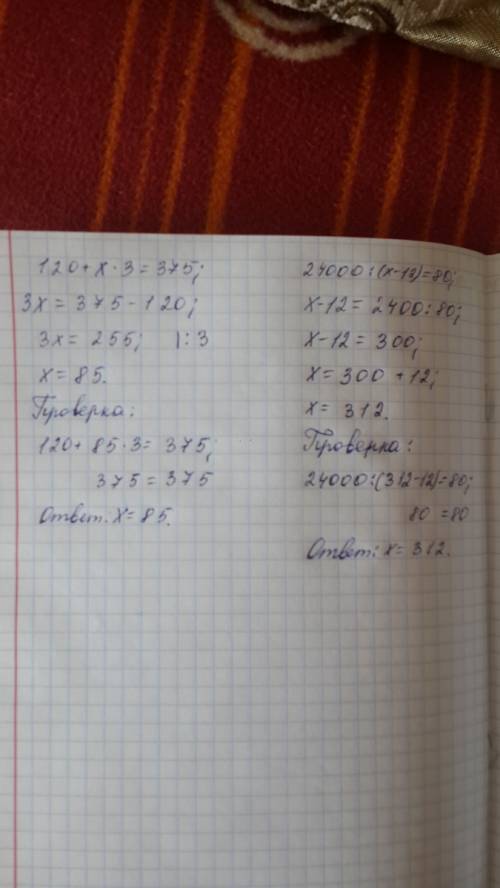 120+x·3=375;
3x=375-120;
3x=255; |:3
x=85.
Проверка:
120+85·3=375;
375=375
Ответ: x=85.
24000:(x-12)=80;
x-12=2400:80;
x-12=300;
x=300+12;
x=312.
Проверка:
24000:(312-12)=80;
80=80
Ответ: x=312.